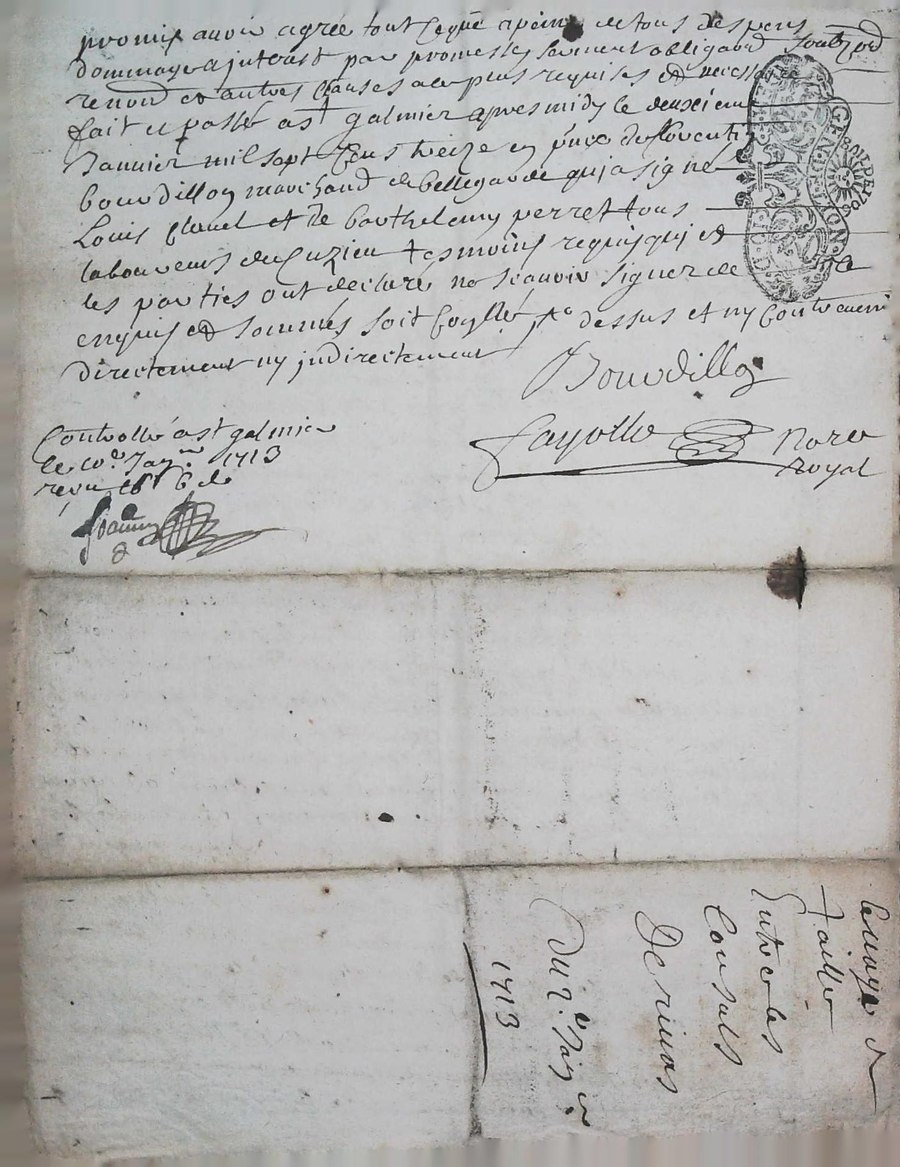 promis avoir agréé tout ceque a peine de tous despens
dommage ajnterest par promesses serment obligaon
renond et autres clauses a ce plus requises et necess
fait et passé a st galmier apres midy le deuxieme
Januier mil sept cens treize en pnce de florentin
bourdillon marchand de bellegarde qui a signé
Louis clauel et de barthelemy perret tous
laboureurs de Cuzieu tesmoins requis qui et
les parties ont declaré ne scauoir signer de ce
enquis et sommés soit coyllé dessus et ny contreueni
directement ny jndirectement
GEN DE LYON
Bourdillon
fayolle Nore
Royal
Controllé a st galmier
le 10e Janer 1713
receu six s 6 d
leuaye et
Taille
Entre les
Consuls
De riuas
Du 2e Jan er
1713